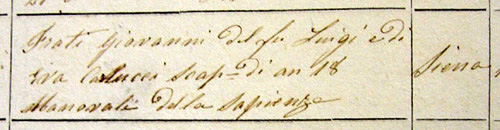 Frati Giovanni del fu Luigi e di
Eva Calucci scap- di an 18
Manovale della Sapienza
Siena